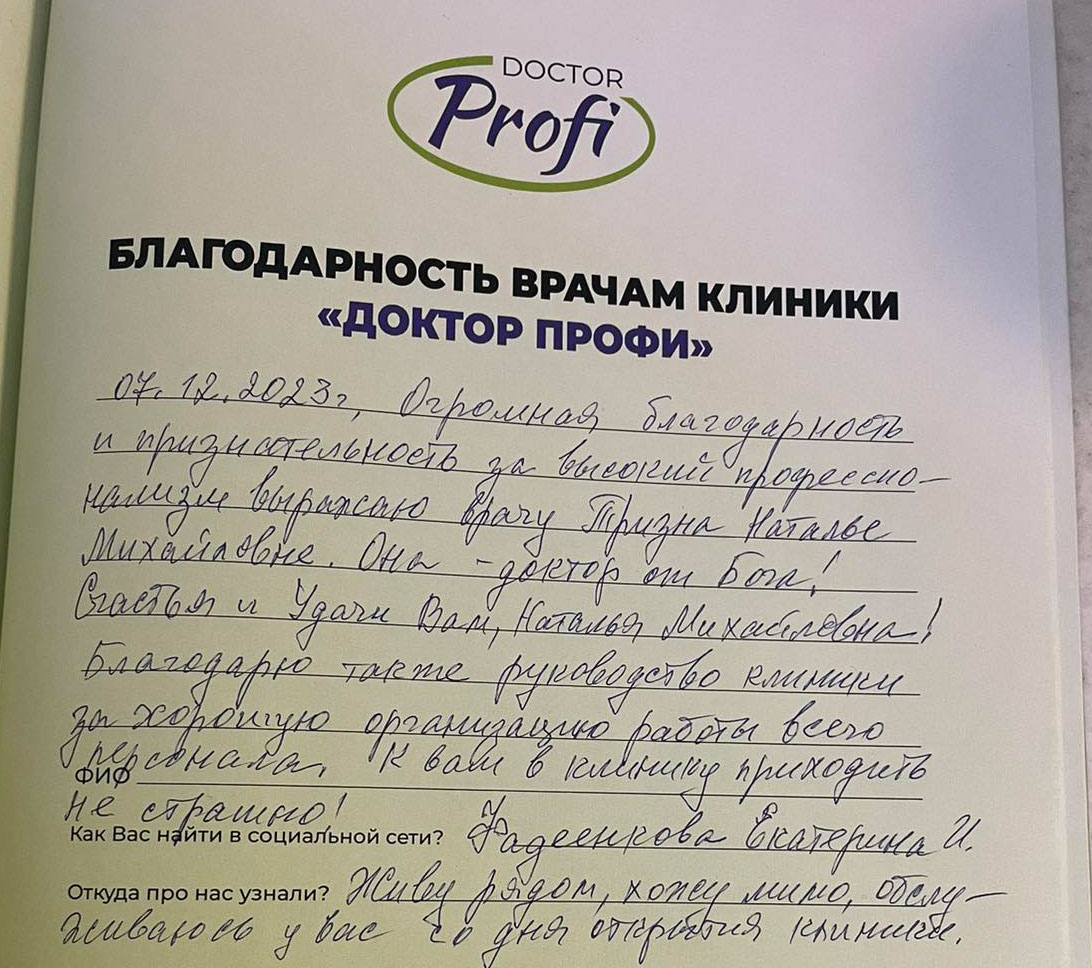 DOCTOR
Profi
БЛАГОДАРНОСТЬ ВРАЧАМ КЛИНИКИ
«ДОКТОР ПРОФИ»
07.12.2023г, Огромная благодарность
и признательность за высокий профессио-
нализм выражаю врачу Тризна Наталье
Михайловне. Она - доктор от Бога!
Счастья и Удачи Вам, Наталья Михайловна!
Благодарю также руководство клиники
за хорошую организацию работы всего
персонала. К вам в клинику приходить
ФИО
не страшно!
Как Вас найти в социальной сети? Фадеенкова Екатерина И.
Откуда про нас узнали? Живу рядом, хожу мимо, обслу-
живаюсь у вас со дня открытия клиники.